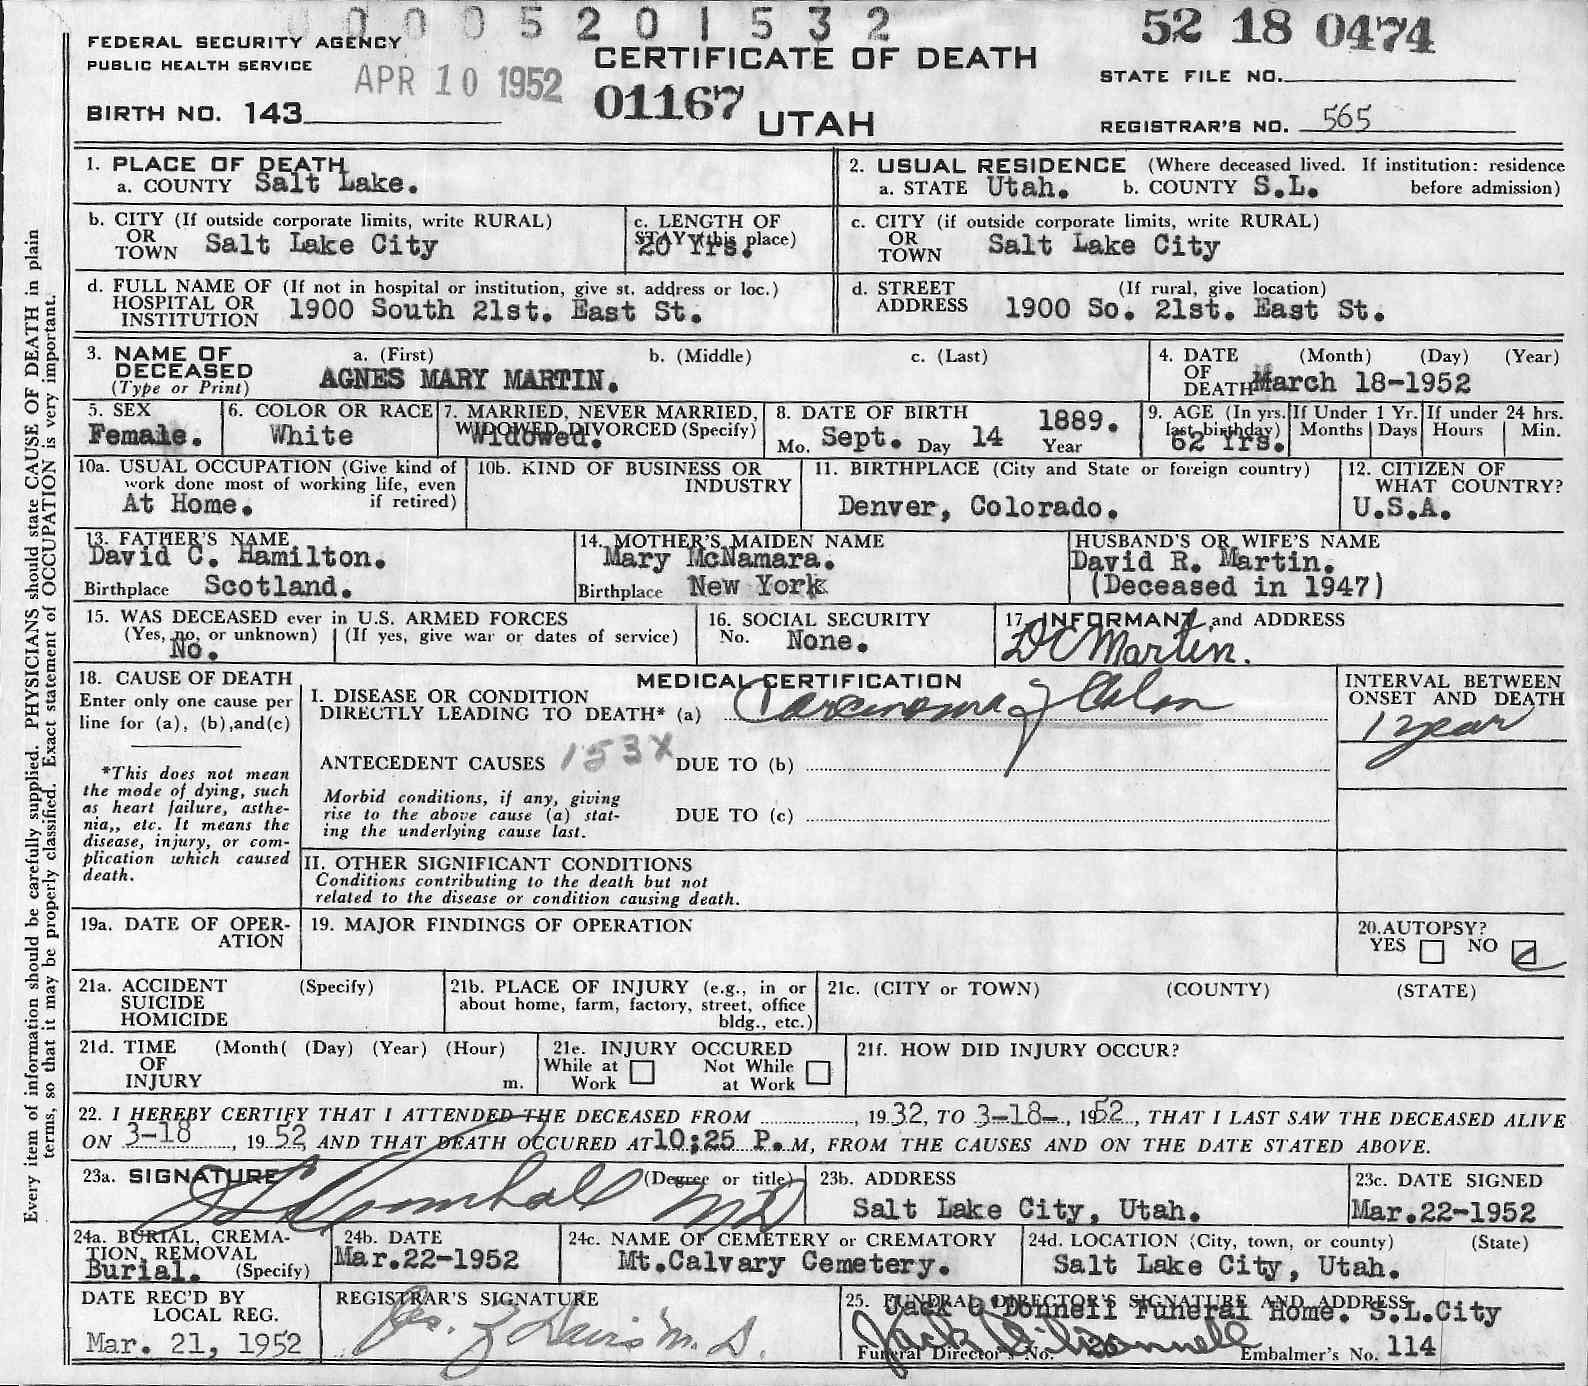 0005201532
52 18 0474
FEDERAL SECURITY AGENCY
PUBLIC HEALTH SERVICE
APR 10 1952
CERTIFICATE OF DEATH
STATE FILE NO.
BIRTH NO. 143
01167 UTAH
REGISTRAR'S NO. 565
1. PLACE OF DEATH
a. COUNTY Salt Lake.
2. USUAL RESIDENCE (Where deceased lived. If institution: residence before admission)
a. STATE Utah. b. COUNTY S.L.
b. CITY (If outside corporate limits, write RURAL)
OR
TOWN Salt Lake City
c. LENGTH OF
STAY (this place)
20 Yrs.
c. CITY (if outside corporate limits, write RURAL)
OR
TOWN Salt Lake City
d. FULL NAME OF (If not in hospital or institution, give st. address or loc.)
HOSPITAL OR
INSTITUTION 1900 South 21st. East St.
d. STREET (If rural, give location)
ADDRESS 1900 So. 21st. East St.
3. NAME OF DECEASED
(Type or Print)
a. (First) b. (Middle) c. (Last)
AGNES MARY MARTIN.
4. DATE OF DEATH (Month) (Day) (Year)
March 18-1952
5. SEX
Female.
6. COLOR OR RACE
White
7. MARRIED, NEVER MARRIED,
WIDOWED, DIVORCED (Specify)
Widowed.
8. DATE OF BIRTH
Mo. Sept. Day 14 1889. Year
9. AGE (In yrs. last birthday)
62 Yrs.
If Under 1 Yr.
Months Days
If under 24 hrs.
Hours Min.
10a. USUAL OCCUPATION (Give kind of
work done most of working life, even
if retired)
At Home.
10b. KIND OF BUSINESS OR
INDUSTRY
11. BIRTHPLACE (City and State or foreign country)
Denver, Colorado.
12. CITIZEN OF
WHAT COUNTRY?
U.S.A.
13. FATHER'S NAME
David C. Hamilton.
Birthplace Scotland.
14. MOTHER'S MAIDEN NAME
Mary McNamara.
Birthplace New York
HUSBAND'S OR WIFE'S NAME
David R. Martin.
(Deceased in 1947)
15. WAS DECEASED ever in U.S. ARMED FORCES
(Yes, no, or unknown) (If yes, give war or dates of service)
No.
16. SOCIAL SECURITY
No. None.
17. INFORMANT and ADDRESS
D C Martin.
18. CAUSE OF DEATH
Enter only one cause per
line for (a), (b), and (c)
*This does not mean
the mode of dying, such
as heart failure, asthe-
nia,, etc. It means the
disease, injury, or com-
plication which caused
death.
MEDICAL CERTIFICATION
I. DISEASE OR CONDITION
DIRECTLY LEADING TO DEATH* (a) Carcinoma of Colon
INTERVAL BETWEEN
ONSET AND DEATH
1 year
ANTECEDENT CAUSES 153X DUE TO (b)
Morbid conditions, if any, giving
rise to the above cause (a) stat-
ing the underlying cause last.
DUE TO (c)
II. OTHER SIGNIFICANT CONDITIONS
Conditions contributing to the death but not
related to the disease or condition causing death.
19a. DATE OF OPER-
ATION
19. MAJOR FINDINGS OF OPERATION
20. AUTOPSY?
YES NO
21a. ACCIDENT (Specify)
SUICIDE
HOMICIDE
21b. PLACE OF INJURY (e.g., in or
about home, farm, factory, street, office
bldg., etc.)
21c. (CITY or TOWN) (COUNTY) (STATE)
21d. TIME (Month( (Day) (Year) (Hour)
OF
INJURY m.
21e. INJURY OCCURED
While at Work Not While at Work
21f. HOW DID INJURY OCCUR?
22. I HEREBY CERTIFY THAT I ATTENDED THE DECEASED FROM 1932, TO 3-18-, 1952, THAT I LAST SAW THE DECEASED ALIVE
ON 3-18, 1952 AND THAT DEATH OCCURED AT 10:25 P. M, FROM THE CAUSES AND ON THE DATE STATED ABOVE.
23a. SIGNATURE (Degree or title)
MD
23b. ADDRESS
Salt Lake City, Utah.
23c. DATE SIGNED
Mar.22-1952
24a. BURIAL, CREMA-
TION, REMOVAL
Burial. (Specify)
24b. DATE
Mar.22-1952
24c. NAME OF CEMETERY OR CREMATORY
Mt.Calvary Cemetery.
24d. LOCATION (City, town, or county) (State)
Salt Lake City, Utah.
DATE REC'D BY
LOCAL REG.
Mar. 21, 1952
REGISTRAR'S SIGNATURE
Davis M.D.
25. FUNERAL DIRECTOR'S SIGNATURE AND ADDRESS
Jack O'Donnell Funeral Home. S.L.City
Funeral Director's No. 26 Embalmer's No. 114
Every item of information should be carefully supplied. PHYSICIANS should state CAUSE OF DEATH in plain
terms, so that it may be properly classified. Exact statement of OCCUPATION is very important.